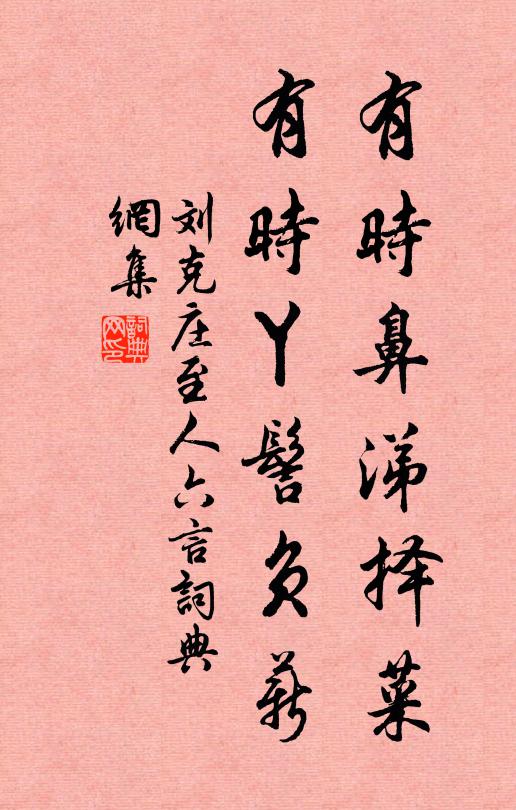 有時鼻涕择菜
有時丫髻负薪
刘克庄至人六言詞典
網集
詞典网印